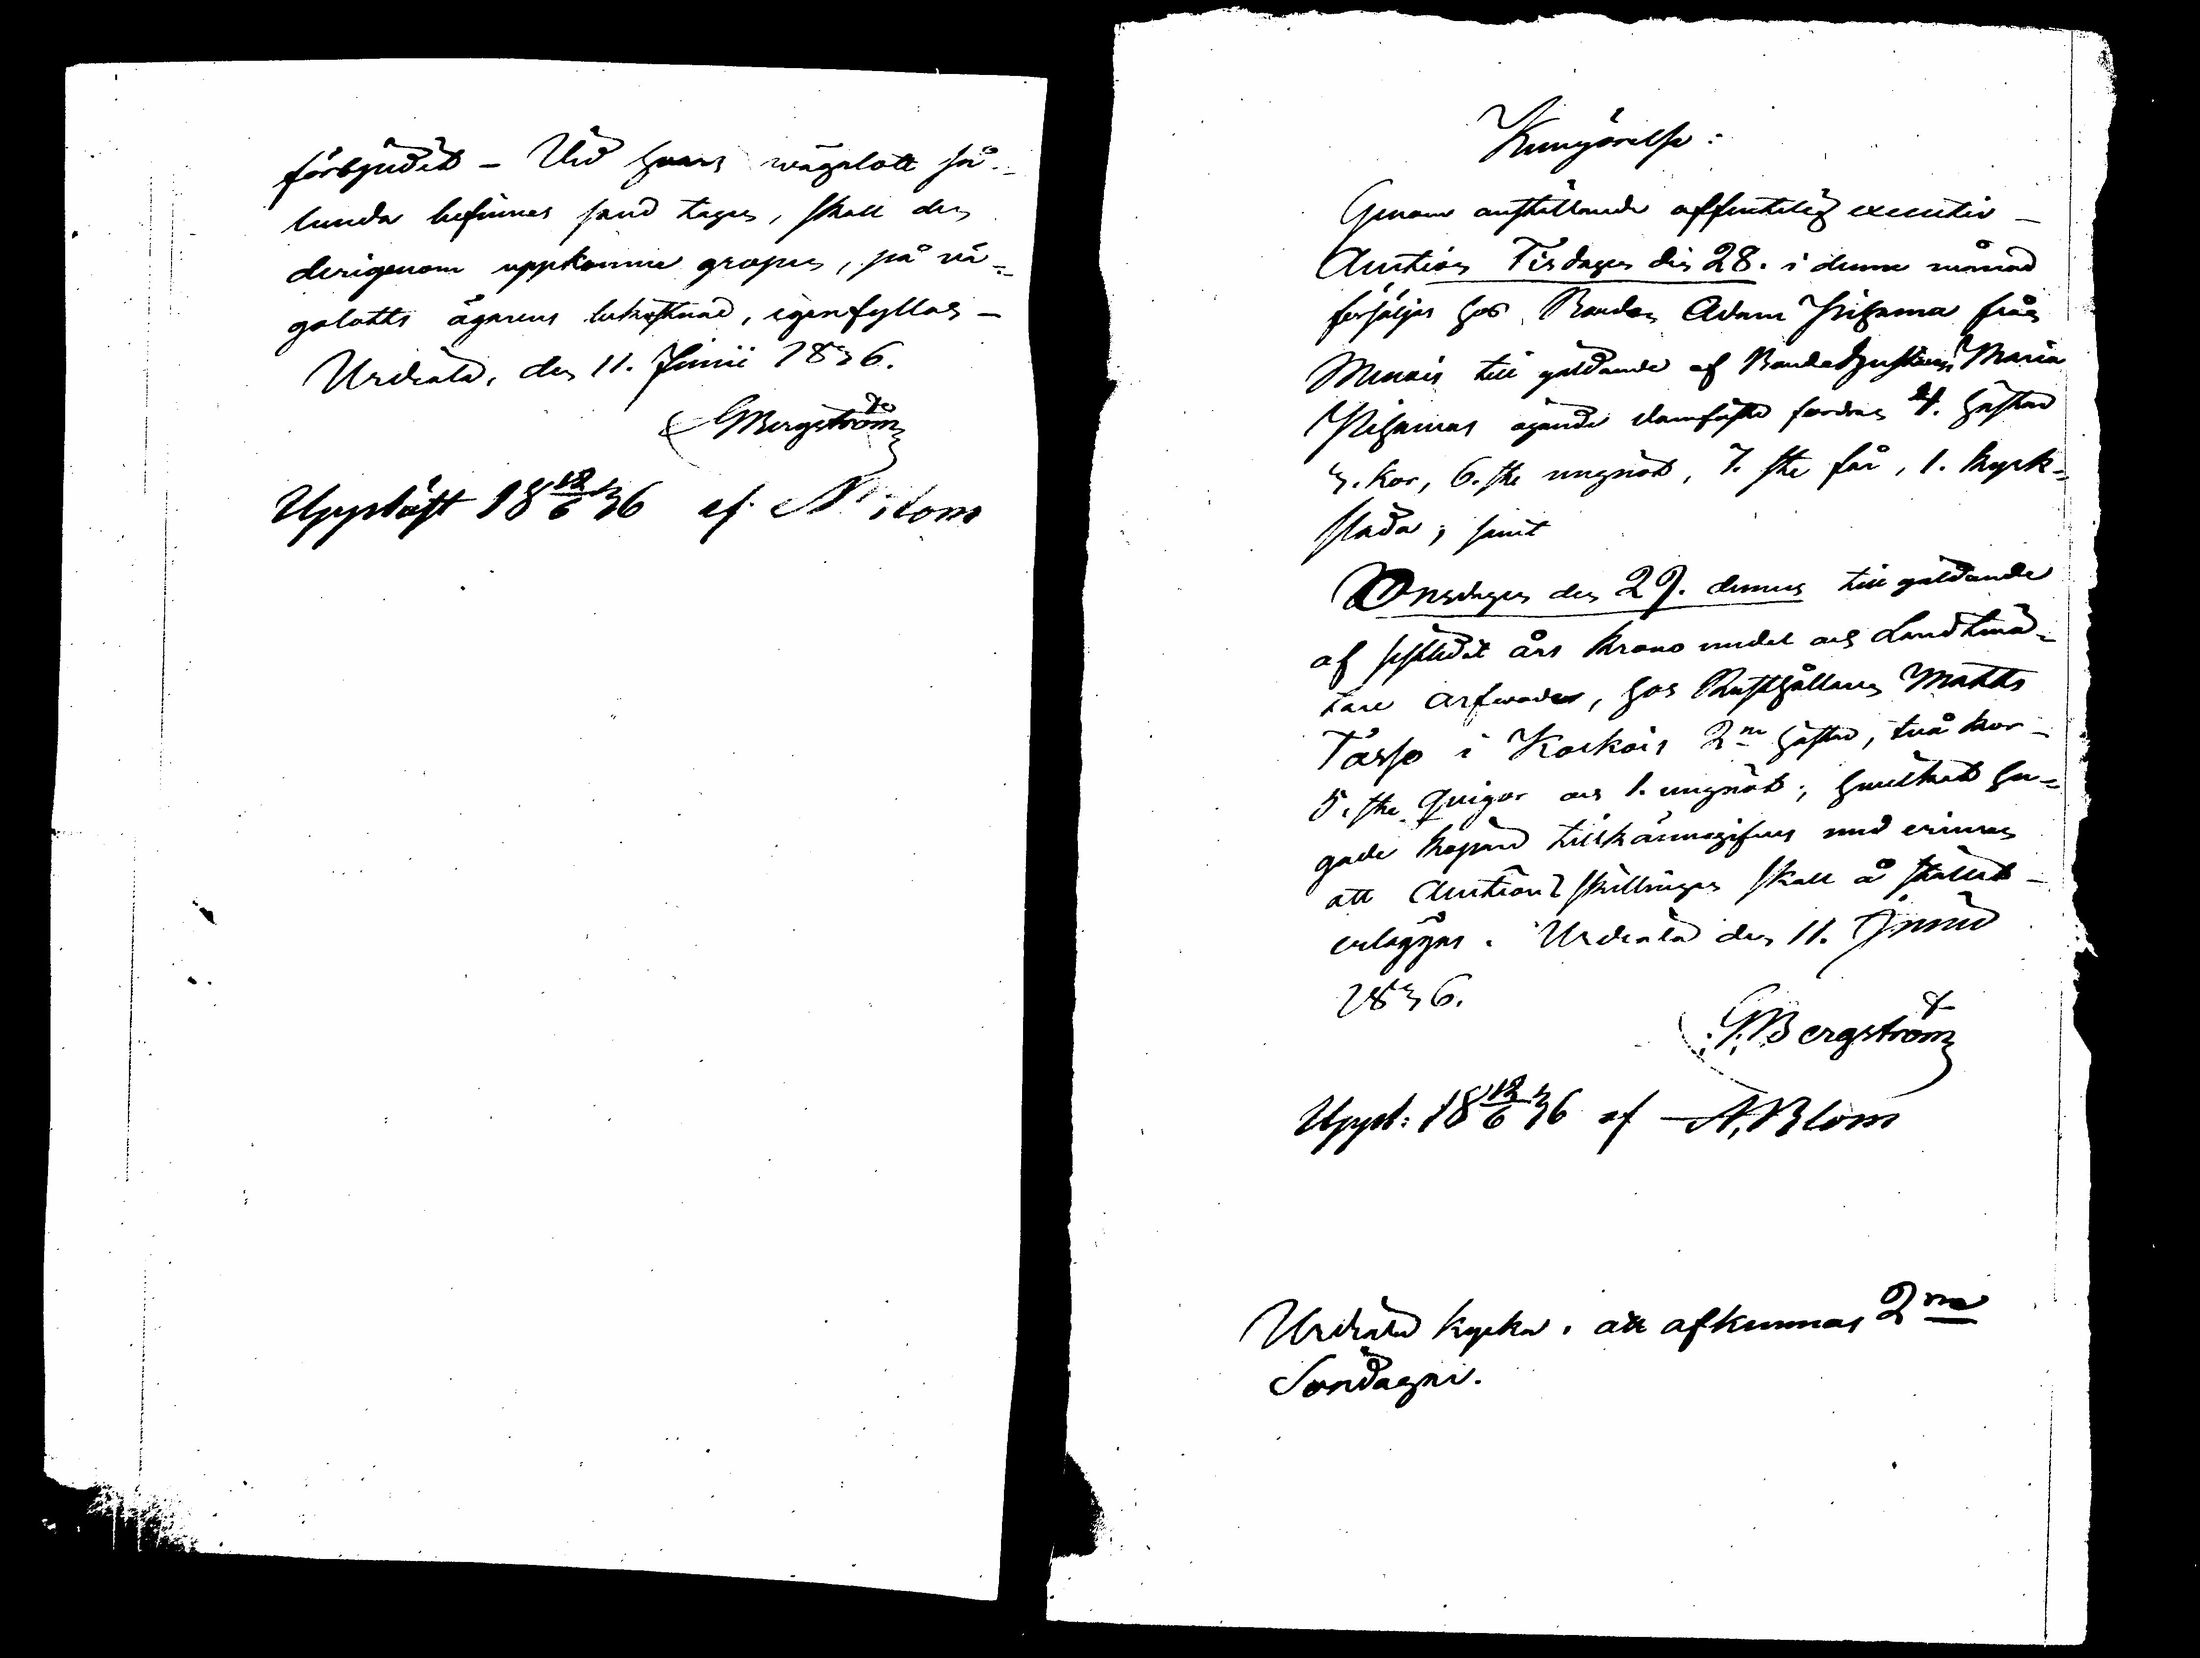 förbjudet – Vid hvars wägalott så-
lunda befinnes sand tagen, skall den
derigenom uppkomne gropen, på vä-
galotts ägarens bekostnad, igenfyllas –
Urdiala, den 11. Junii 1836.
GBergström
Uppläst 18 12/6 36 af A Blom
Kungörelse:
Genom anställande offentelig executiv –
Auction Tisdagen den 28. i denne månad
försäljes hos Bonden Adam Pihama från
Menois till gäldande af Bondehustrun Maria
Pihamas ägande domfäste fordran 4. hästar
3. kor, 6. ste ungnöt, 7. ste får, 1. kyrk-
släda, samt
Onsdagen den 29. dennes till gäldande
af sistledit års krono medel och Landtmä-
tare arfvoden, hos Rusthållaren Matts
Tasso i Koskois 2ne hästar, två kor –
5. ste Qvigor och 1. ungnöt; hvilket hu-
gade köpare tillkännagifves med erinran
att Auctions skillingen skall å stället –
erläggas. Urdiala den 11. Junii
1836.
G. Bergström
Uppl: 18 12/6 36 af A. Blom
Urdiala kyrka, att afkunnas 2ne
Söndagar.